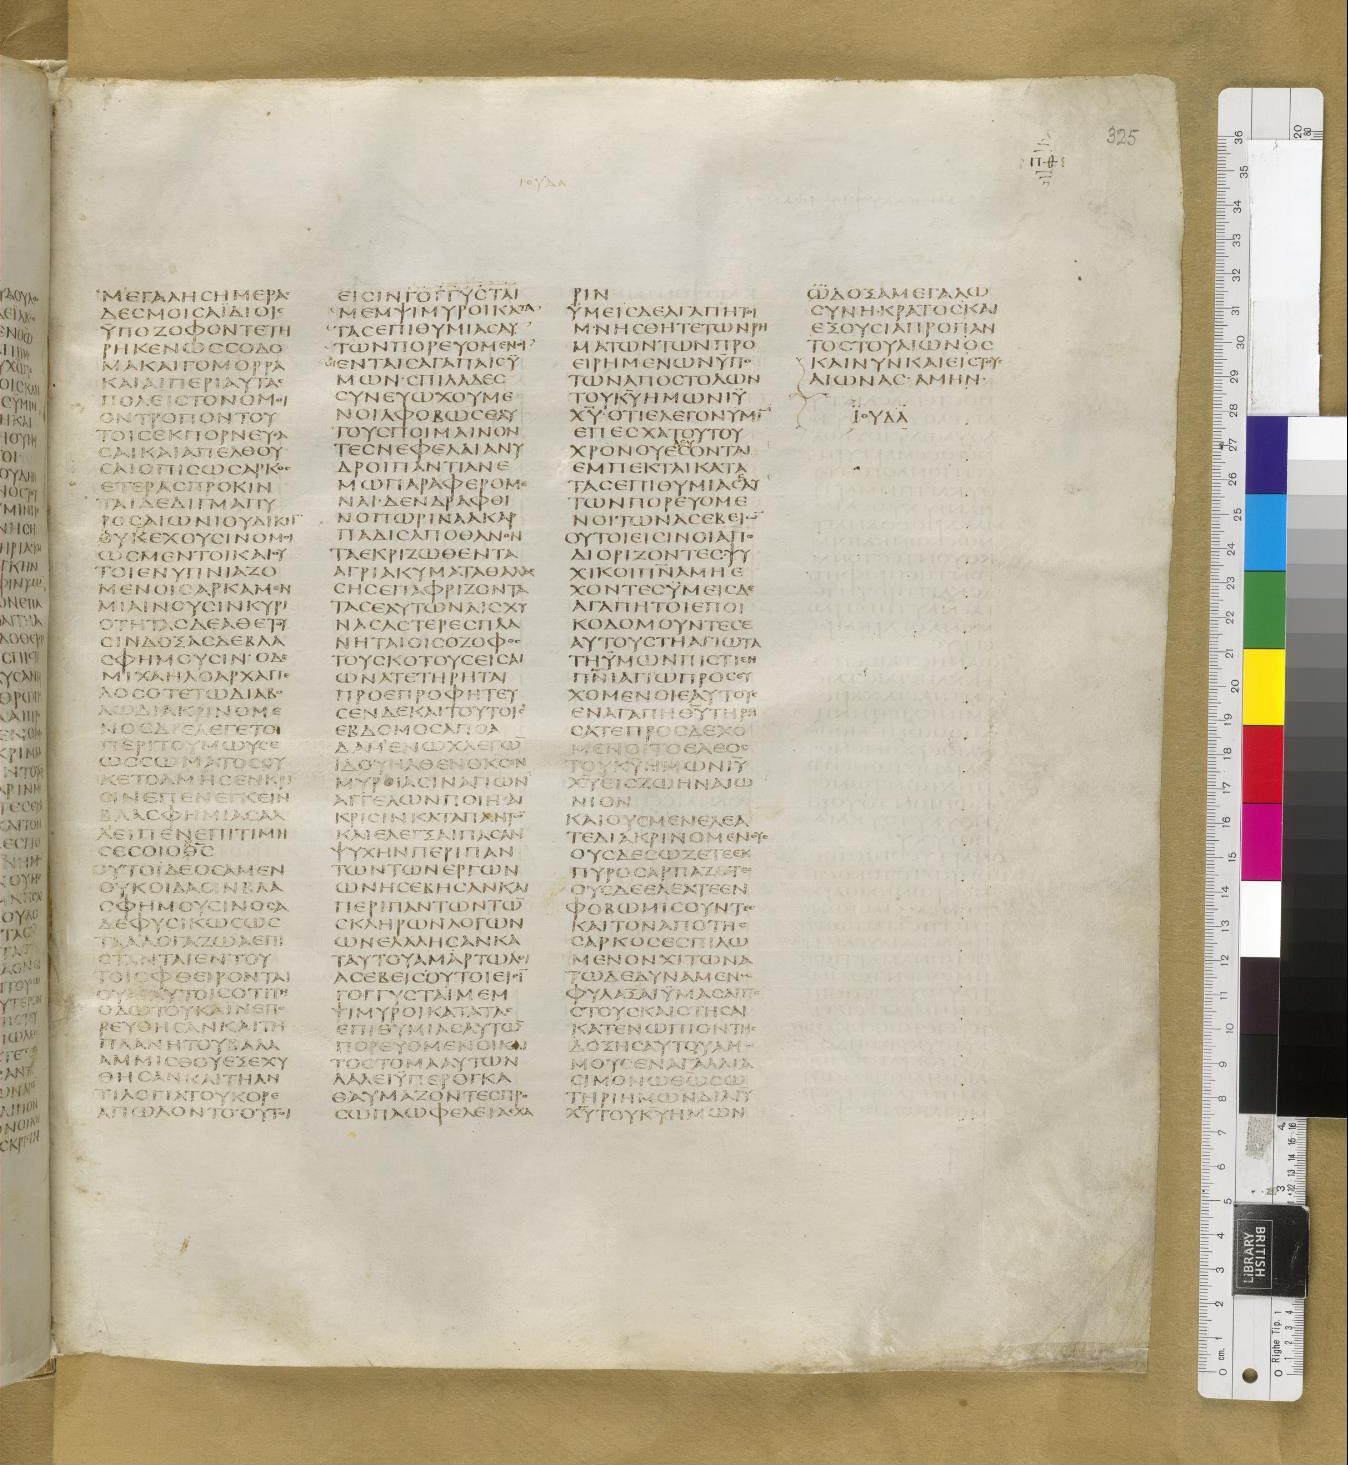 ΙΟΥΔΑ
325
ΜΕΓΑΛΗϹΗΜΕΡΑ
ΔΕϹΜΟΙϹΑΪΔΙΟΙϹ
ΫΠΟΖΟΦΟΝΤΕΤΗ
ΡΗΚΕΝΩϹϹΟΔΟ
ΜΑΚΑΙΓΟΜΟΡΡΑ
ΚΑΙΑΙΠΕΡΙΑΥΤΑϹ
ΠΟΛΕΙϹΤΟΝΟΜΟΙ
ΟΝΤΡΟΠΟΝΤΟΥ
ΤΟΙϹΕΚΠΟΡΝΕΥϹΑ
ϹΑΙΚΑΙΑΠΕΛΘΟΥ
ϹΑΙΟΠΙϹΩϹΑΡΚΟϹ
ΕΤΕΡΑϹΠΡΟΚΙΝ
ΤΑΙΔΕΔΙΓΜΑΠΥ
ΡΟϹΑΙΩΝΙΟΥΔΙΚΗΝ
ΟΥΚΕΧΟΥϹΙΝΟΜΟΙ
ΩϹΜΕΝΤΟΙΚΑΙΟΥ
ΤΟΙΕΝΥΠΝΙΑΖΟ
ΜΕΝΟΙϹΑΡΚΑΜΕΝ
ΜΙΑΙΝΟΥϹΙΝΚΥΡΙ
ΟΤΗΤΑϹΔΕΑΘΕΤΟΥ
ϹΙΝΔΟΞΑϹΔΕΒΛΑ
ϹΦΗΜΟΥϹΙΝ·ΟΔΕ
ΜΙΧΑΗΛΟΑΡΧΑΓΓΕ
ΛΟϹΟΤΕΤΩΔΙΑΒΟ
ΛΩΔΙΑΚΡΙΝΟΜΕ
ΝΟϹΔΙΕΛΕΓΕΤΟ
ΠΕΡΙΤΟΥΜΩΥϹΕ
ΩϹϹΩΜΑΤΟϹΟΥ
ΚΕΤΟΛΜΗϹΕΝΚΡΙ
ϹΙΝΕΠΕΝΕΓΚΕΙΝ
ΒΛΑϹΦΗΜΙΑϹΑΛ
ΛΕΙΠΕΝΕΠΙΤΙΜΗ
ϹΕϹΟΙΟΘϹ
ΟΥΤΟΙΔΕΟϹΑΜΕΝ
ΟΥΚΟΙΔΑϹΙΝΒΛΑ
ϹΦΗΜΟΥϹΙΝΟϹΑ
ΔΕΦΥϹΙΚΩϹΩϹ
ΤΑΑΛΟΓΑΖΩΑΕΠΙ
ϹΤΑΝΤΑΙΕΝΤΟΥ
ΤΟΙϹΦΘΕΙΡΟΝΤΑΙ
ΟΥΑΙΑΥΤΟΙϹΟΤΙΤΗ
ΟΔΩΤΟΥΚΑΙΝΕΠΟ
ΡΕΥΘΗϹΑΝΚΑΙΤΗ
ΠΛΑΝΗΤΟΥΒΑΛΑ
ΑΜΜΙϹΘΟΥΕΞΕΧΥ
ΘΗϹΑΝΚΑΙΤΗΑΝ
ΤΙΛΟΓΙΑΤΟΥΚΟΡΕ
ΑΠΩΛΟΝΤΟ·ΟΥΤΟΙ
ΕΙϹΙΝΓΟΓΓΥϹΤΑΙ
ΜΕΜΨΙΜΥΡΟΙΚΑΤΑ
ΤΑϹΕΠΙΘΥΜΙΑϹΑΥ
ΤΩΝΠΟΡΕΥΟΜΕΝΟΙ
ΕΝΤΑΙϹΑΓΑΠΑΙϹΫ
ΜΩΝ·ϹΠΙΛΑΔΕϹ
ϹΥΝΕΥΩΧΟΥΜΕ
ΝΟΙΑΦΟΒΩϹΕΑΥ
ΤΟΥϹΠΟΙΜΑΙΝΟΝ
ΤΕϹΝΕΦΕΛΑΙΑΝΥ
ΔΡΟΙΠΑΝΤΙΑΝΕ
ΜΩΠΑΡΑΦΕΡΟΜΕ
ΝΑΙ·ΔΕΝΔΡΑΦΘΙ
ΝΟΠΩΡΙΝΑΑΚΑΡ
ΠΑΔΙϹΑΠΟΘΑΝΟΝ
ΤΑΕΚΡΙΖΩΘΕΝΤΑ
ΑΓΡΙΑΚΥΜΑΤΑΘΑΛΑϹ
ϹΗϹΕΠΑΦΡΙΖΟΝΤΑ
ΤΑϹΕΑΥΤΩΝΑΙϹΧΥ
ΝΑϹΑϹΤΕΡΕϹΠΛΑ
ΝΗΤΑΙΟΙϹΟΖΟΦΟϹ
ΤΟΥϹΚΟΤΟΥϹΕΙϹΑΙ
ΩΝΑΤΕΤΗΡΗΤΑΙ
ΠΡΟΕΠΡΟΦΗΤΕΥ
ϹΕΝΔΕΚΑΙΤΟΥΤΟΙϹ
ΕΒΔΟΜΟϹΑΠΟΑ
ΔΑΜΕΝΩΧΛΕΓΩ
ΪΔΟΥΗΛΘΕΝΟΚϹΕΝ
ΜΥΡΙΑϹΙΝΑΓΙΩΝ
ΑΓΓΕΛΩΝΠΟΙΗϹΑΙ
ΚΡΙϹΙΝΚΑΤΑΠΑΝΤΩ
ΚΑΙΕΛΕΓΞΑΙΠΑϹΑΝ
ΨΥΧΗΝΠΕΡΙΠΑΝ
ΤΩΝΤΩΝΕΡΓΩΝ
ΩΝΗϹΕΒΗϹΑΝΚΑΙ
ΠΕΡΙΠΑΝΤΩΝΤΩ
ϹΚΛΗΡΩΝΛΟΓΩΝ
ΩΝΕΛΑΛΗϹΑΝΚΑ
ΤΑΥΤΟΥΑΜΑΡΤΩΛΟΙ
ΑϹΕΒΕΙϹΟΥΤΟΙΕΙϹΙ
ΓΟΓΓΥϹΤΑΙΜΕΜ
ΨΙΜΥΡΟΙΚΑΤΑΤΑϹ
ΕΠΙΘΥΜΙΑϹΑΥΤΩ
ΠΟΡΕΥΟΜΕΝΟΙΚΑΙ
ΤΟϹΤΟΜΑΑΥΤΩΝ
ΛΑΛΕΙΫΠΕΡΟΓΚΑ
ΘΑΥΜΑΖΟΝΤΕϹΠΡΟ
ϹΩΠΑΩΦΕΛΕΙΑϹΧΑ
ΡΙΝ
ΫΜΕΙϹΔΕΑΓΑΠΗΤΟΙ
ΜΝΗϹΘΗΤΕΤΩΝΡΗ
ΜΑΤΩΝΤΩΝΠΡΟ
ΕΙΡΗΜΕΝΩΝΫΠΟ
ΤΩΝΑΠΟϹΤΟΛΩΝ
ΤΟΥΚΥΗΜΩΝΙΥ
ΧΥ·ΟΤΙΕΛΕΓΟΝΥΜΙ
ΕΠΕϹΧΑΤΟΥΤΟΥ
ΧΡΟΝΟΥΕϹΟΝΤΑΙ
ΕΜΠΕΚΤΑΙΚΑΤΑ
ΤΑϹΕΠΙΘΥΜΙΑϹΑΥ
ΤΩΝΠΟΡΕΥΟΜΕ
ΝΟΙΤΩΝΑϹΕΒΕΙΩ
ΟΥΤΟΙΕΙϹΙΝΟΙΑΠΟ
ΔΙΟΡΙΖΟΝΤΕϹΨΥ
ΧΙΚΟΙΠΝΑΜΗΕ
ΧΟΝΤΕϹΫΜΕΙϹΔΕ
ΑΓΑΠΗΤΟΙΕΠΟΙ
ΚΟΔΟΜΟΥΝΤΕϹΕ
ΑΥΤΟΥϹΤΗΑΓΙΩΤΑ
ΤΗΫΜΩΝΠΙϹΤΙΕΝ
ΠΝΙΑΓΙΩΠΡΟϹΕΥ
ΧΟΜΕΝΟΙΕΑΥΤΟΥϹ
ΕΝΑΓΑΠΗΘΥΤΗΡΗ
ϹΑΤΕΠΡΟϹΔΕΧΟ
ΜΕΝΟΙΤΟΕΛΕΟϹ
ΤΟΥΚΥΗΜΩΝΙΥ
ΧΥΕΙϹΖΩΗΝΑΙΩ
ΝΙΟΝ
ΚΑΙΟΥϹΜΕΝΕΛΕΑ
ΤΕΔΙΑΚΡΙΝΟΜΕΝΟΥϹ
ΟΥϹΔΕϹΩΖΕΤΕΕΚ
ΠΥΡΟϹΑΡΠΑΖΟΤΕϹ
ΟΥϹΔΕΕΛΕΑΤΕΕΝ
ΦΟΒΩΜΙϹΟΥΝΤΕϹ
ΚΑΙΤΟΝΑΠΟΤΗϹ
ϹΑΡΚΟϹΕϹΠΙΛΩ
ΜΕΝΟΝΧΙΤΩΝΑ
ΤΩΔΕΔΥΝΑΜΕΝΩ
ΦΥΛΑΞΑΙΫΜΑϹΑΠΤΑΙ
ϹΤΟΥϹΚΑΙϹΤΗϹΑΙ
ΚΑΤΕΝΩΠΙΟΝΤΗϹ
ΔΟΞΗϹΑΥΤΟΥΑΜΩ
ΜΟΥϹΕΝΑΓΑΛΛΙΑ
ϹΙΜΟΝΩΘΩϹΩ
ΤΗΡΙΗΜΩΝΔΙΑΙΥ
ΧΥΤΟΥΚΥΗΜΩΝ
ΩΔΟΞΑΜΕΓΑΛΩ
ϹΥΝΗ·ΚΡΑΤΟϹΚΑΙ
ΕΞΟΥϹΙΑΠΡΟΠΑΝ
ΤΟϹΤΟΥΑΙΩΝΟϹ
ΚΑΙΝΥΝΚΑΙΕΙϹΤΟΥϹ
ΑΙΩΝΑϹ·ΑΜΗΝ·
ΪΟΥΔΑ
BRITISH
LIBRARY